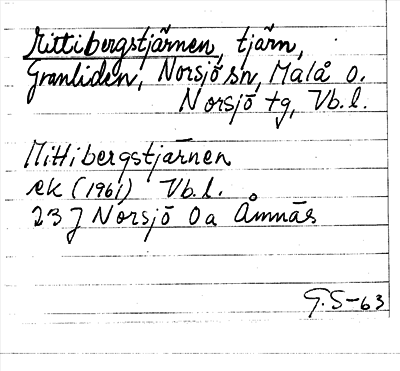 Mittibergstjärnen, tjärn,
Granliden, Norsjö sn, Malå o.
Norsjö tg, Vb.l.
Mittibergstjärnen
ek (1961) Vb.l.
23 J Norsjö 0a Åmnäs
G.S-63